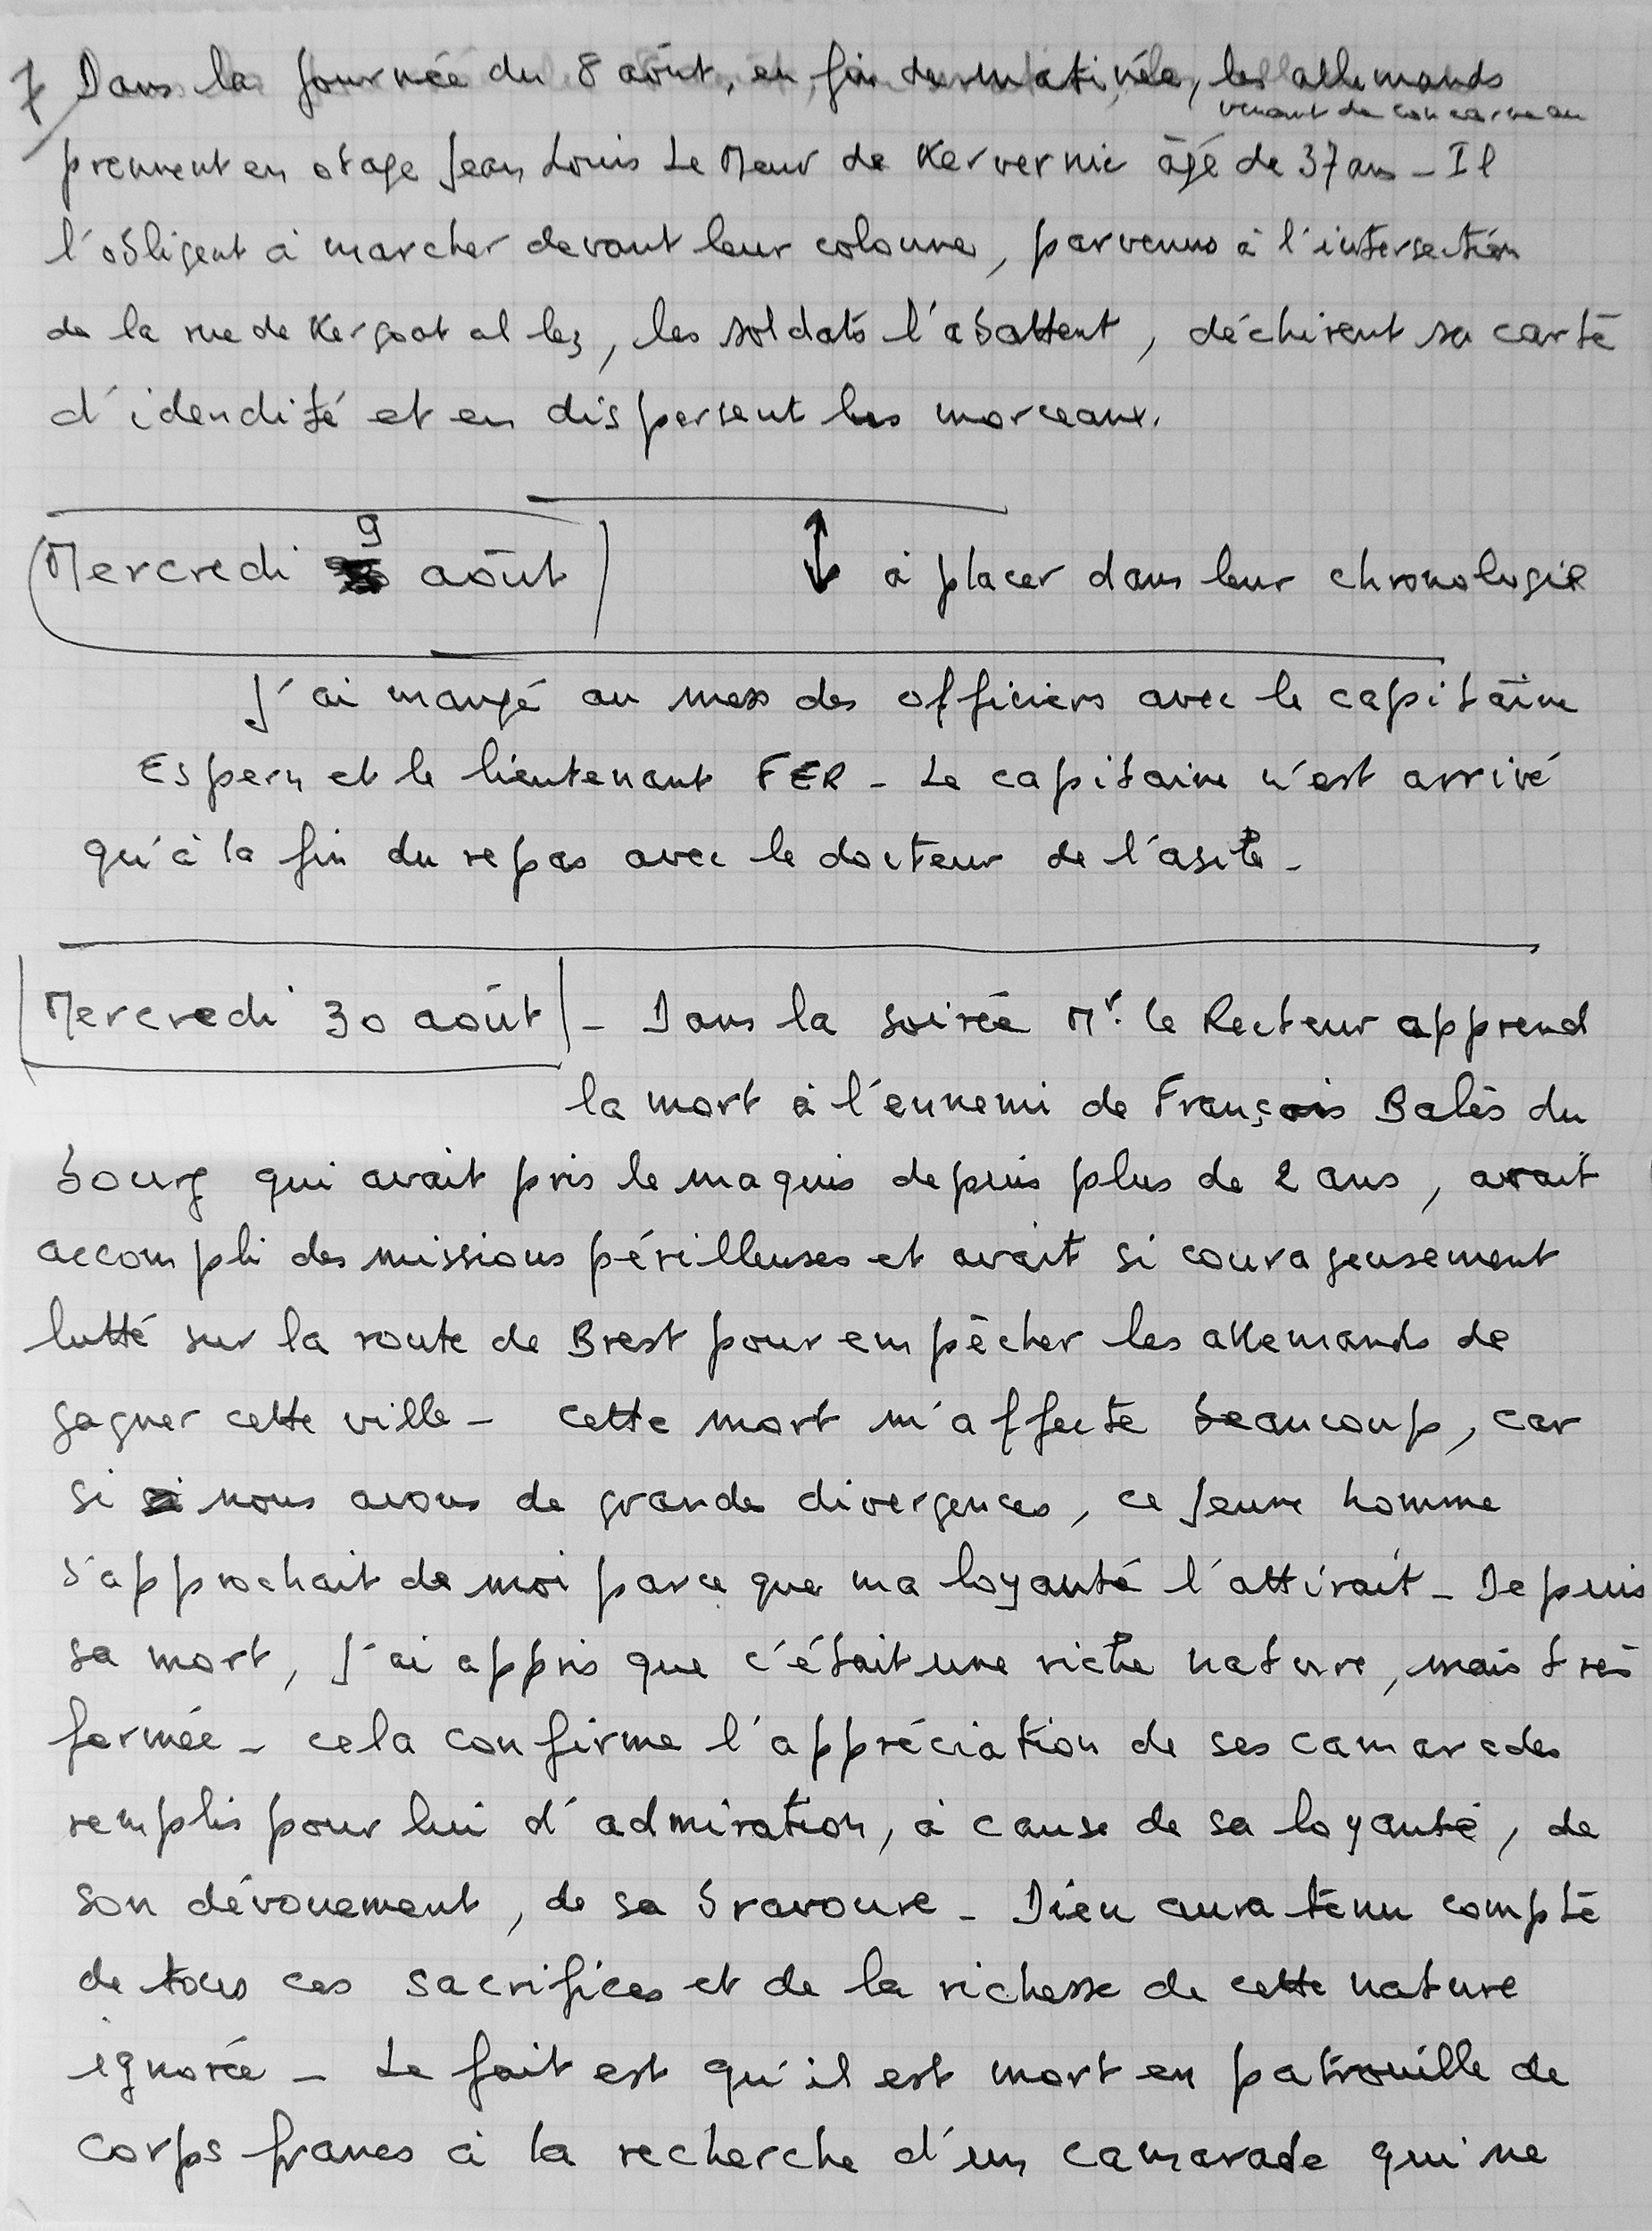 7 Dans la journée du 8 août, en fin de matinée, les allemands
venant de concarneau
prennent en otage Jean Louis Le Meur de Kervernic âgé de 37 ans - Il
l'obligent à marcher devant leur colonne, parvenus à l'intersection
de la rue de Kergoat al lez, les soldats l'abattent, déchirent sa carte
d'idendité et en dispersent les morceaux.
9
Mercredi août à placer dans leur chronologie
J'ai mangé au mess des officiers avec le capitaine
Espern et le lieutenant FER - Le capitaine n'est arrivé
qu'à la fin du repas avec le docteur de l'asile -
Mercredi 30 août - Dans la soirée Mr. le Recteur apprend
la mort à l'ennemi de François Balès du
bourg qui avait pris le maquis depuis plus de 2 ans, avait
accompli des missions périlleuses et avait si courageusement
lutté sur la route de Brest pour empêcher les allemands de
gagner cette ville - cette mort m'affecte beaucoup, car
si nous avons de grandes divergences, ce jeune homme
s'approchait de moi parce que ma loyauté l'attirait - Depuis
sa mort, j'ai appris que c'était une riche nature, mais très
fermée - cela confirme l'appréciation de ses camarades
remplis pour lui d'admiration, à cause de sa loyauté, de
son dévouement, de sa bravoure - Dieu aura tenu compte
de tous ces sacrifices et de la richesse de cette nature
ignorée - Le fait est qu'il est mort en patrouille de
corps francs à la recherche d'un camarade qui ne